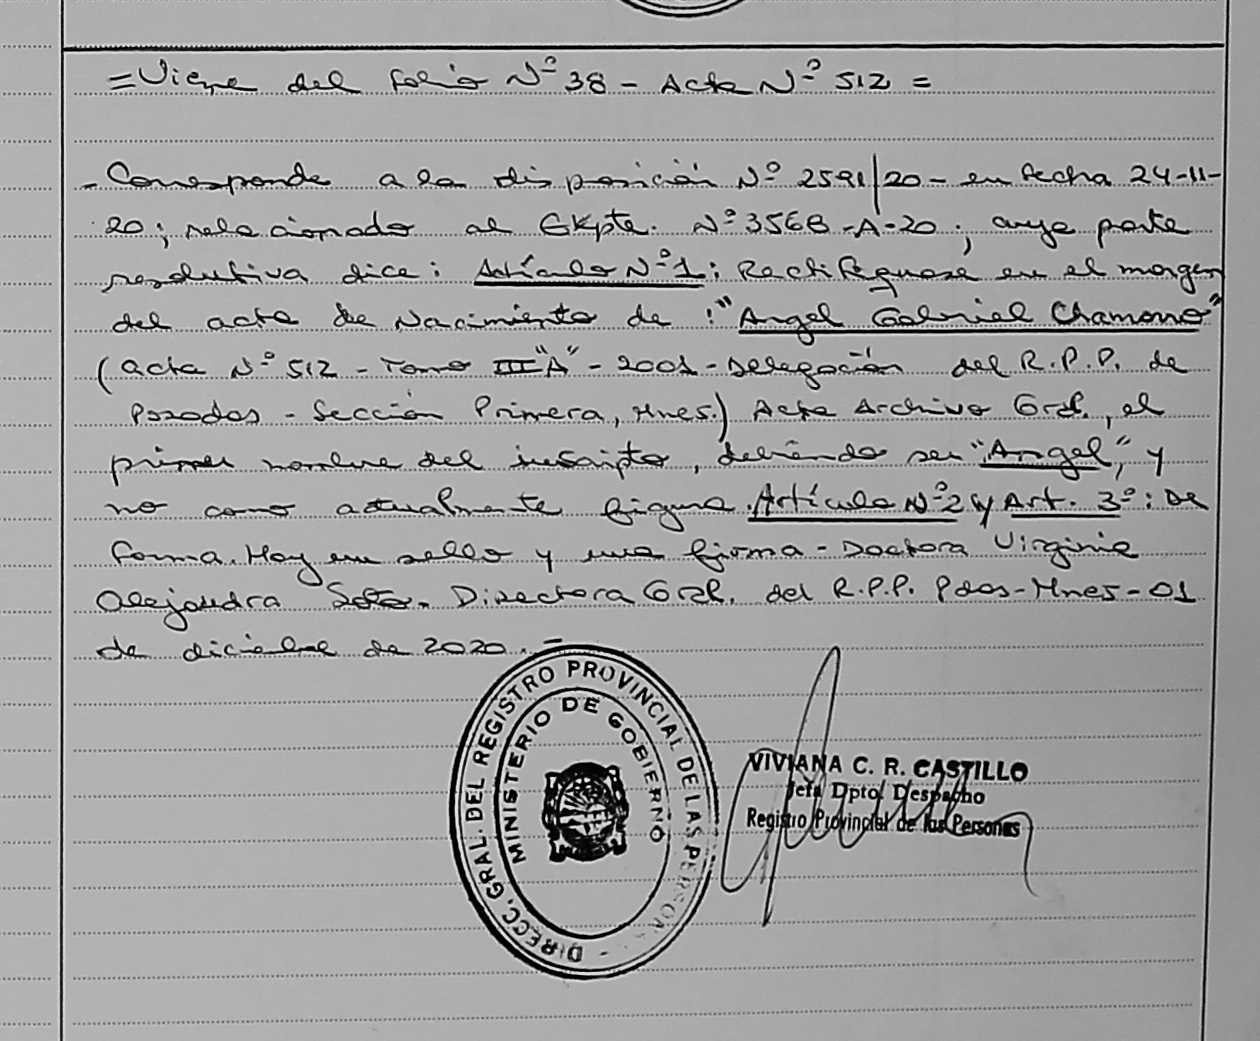 = Viene del folio Nº 38 - Acta Nº 512 =
- Corresponde a la disposición Nº 2591/20 - en fecha 24-11-
20; relacionado al Expte. Nº 3568-A-20; cuya parte
resolutiva dice: Artículo Nº 1: Rectifíquese en el margen
del acta de Nacimiento de: "Angel Gabriel Chamorro"
(acta Nº 512 - Tomo III "A" - 2001 - Delegación del R.P.P. de
Posadas - Sección Primera, Mnes.) Acta Archivo Gral., el
primer nombre del inscripto, debiendo ser "Angel", y
no como actualmente figura. Artículo Nº 2 y Art. 3º: De
forma. Hay un sello y una firma - Doctora Virginia
Alejandra Soto. Directora Gral. del R.P.P. Pdas - Mnes - 01
de diciembre de 2020. =
DIRECC. GRAL. DEL REGISTRO PROVINCIAL DE LAS PERSON
MINISTERIO DE GOBIERNO
VIVIANA C. R. CASTILLO
Jefa Dpto. Despacho
Registro Provincial de las Personas